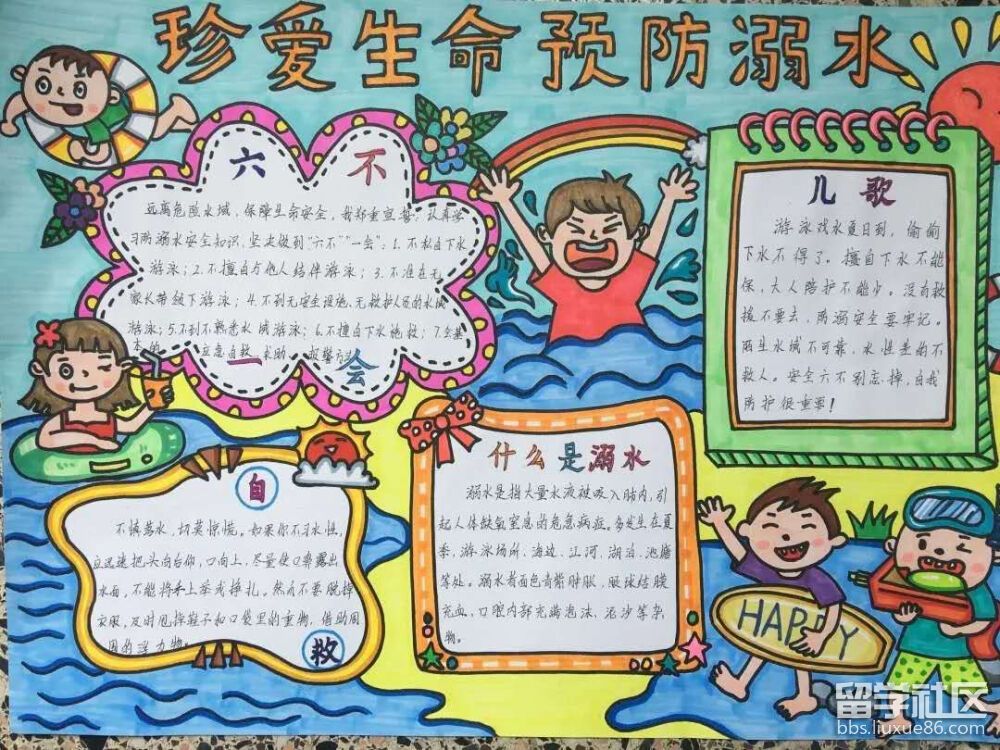 珍爱生命预防溺水
六不
远离危险水域，保障生命安全，我郑重宣誓：认真学
习防溺水安全知识，坚走做到“六不”“一会”：1.不私自下水
游泳；2.不擅自与他人结伴游泳；3.不准在无
家长带领下游泳；4.不到无安全设施、无救护人员的水域
游泳；5.不到不熟悉水域游泳；6.不擅自下水施救；7.会基
本的 应急自救、求助、报警方法
一会
儿歌
游泳戏水夏日到，偷偷
下水不得了。擅自下水不能
保，大人陪护不能少。没有救
援不要去，防溺安全要牢记。
陌生水域不可靠，水性差的不
救人。安全六不别忘掉，自我
防护很重要！
什么是溺水
溺水是指大量水液被吸入肺内，引
起人体缺氧窒息的危急病症。多发生在夏
季，游泳场所、海边、江河、湖泊、池塘
等处。溺水者面色青紫肿胀，眼球结膜
充血，口腔内部充满泡沫、泥沙等杂
物。
自
不慎落水，切莫惊慌。如果你不习水性，
应迅速把头向后仰，口向上，尽量使口鼻露出
水面，不能将手上举或挣扎。然而不要脱掉
衣服，及时甩掉鞋子和口袋里的重物，借助周
围的浮力物。
救
HAPPY
留学社区
bbs.liuxue86.com